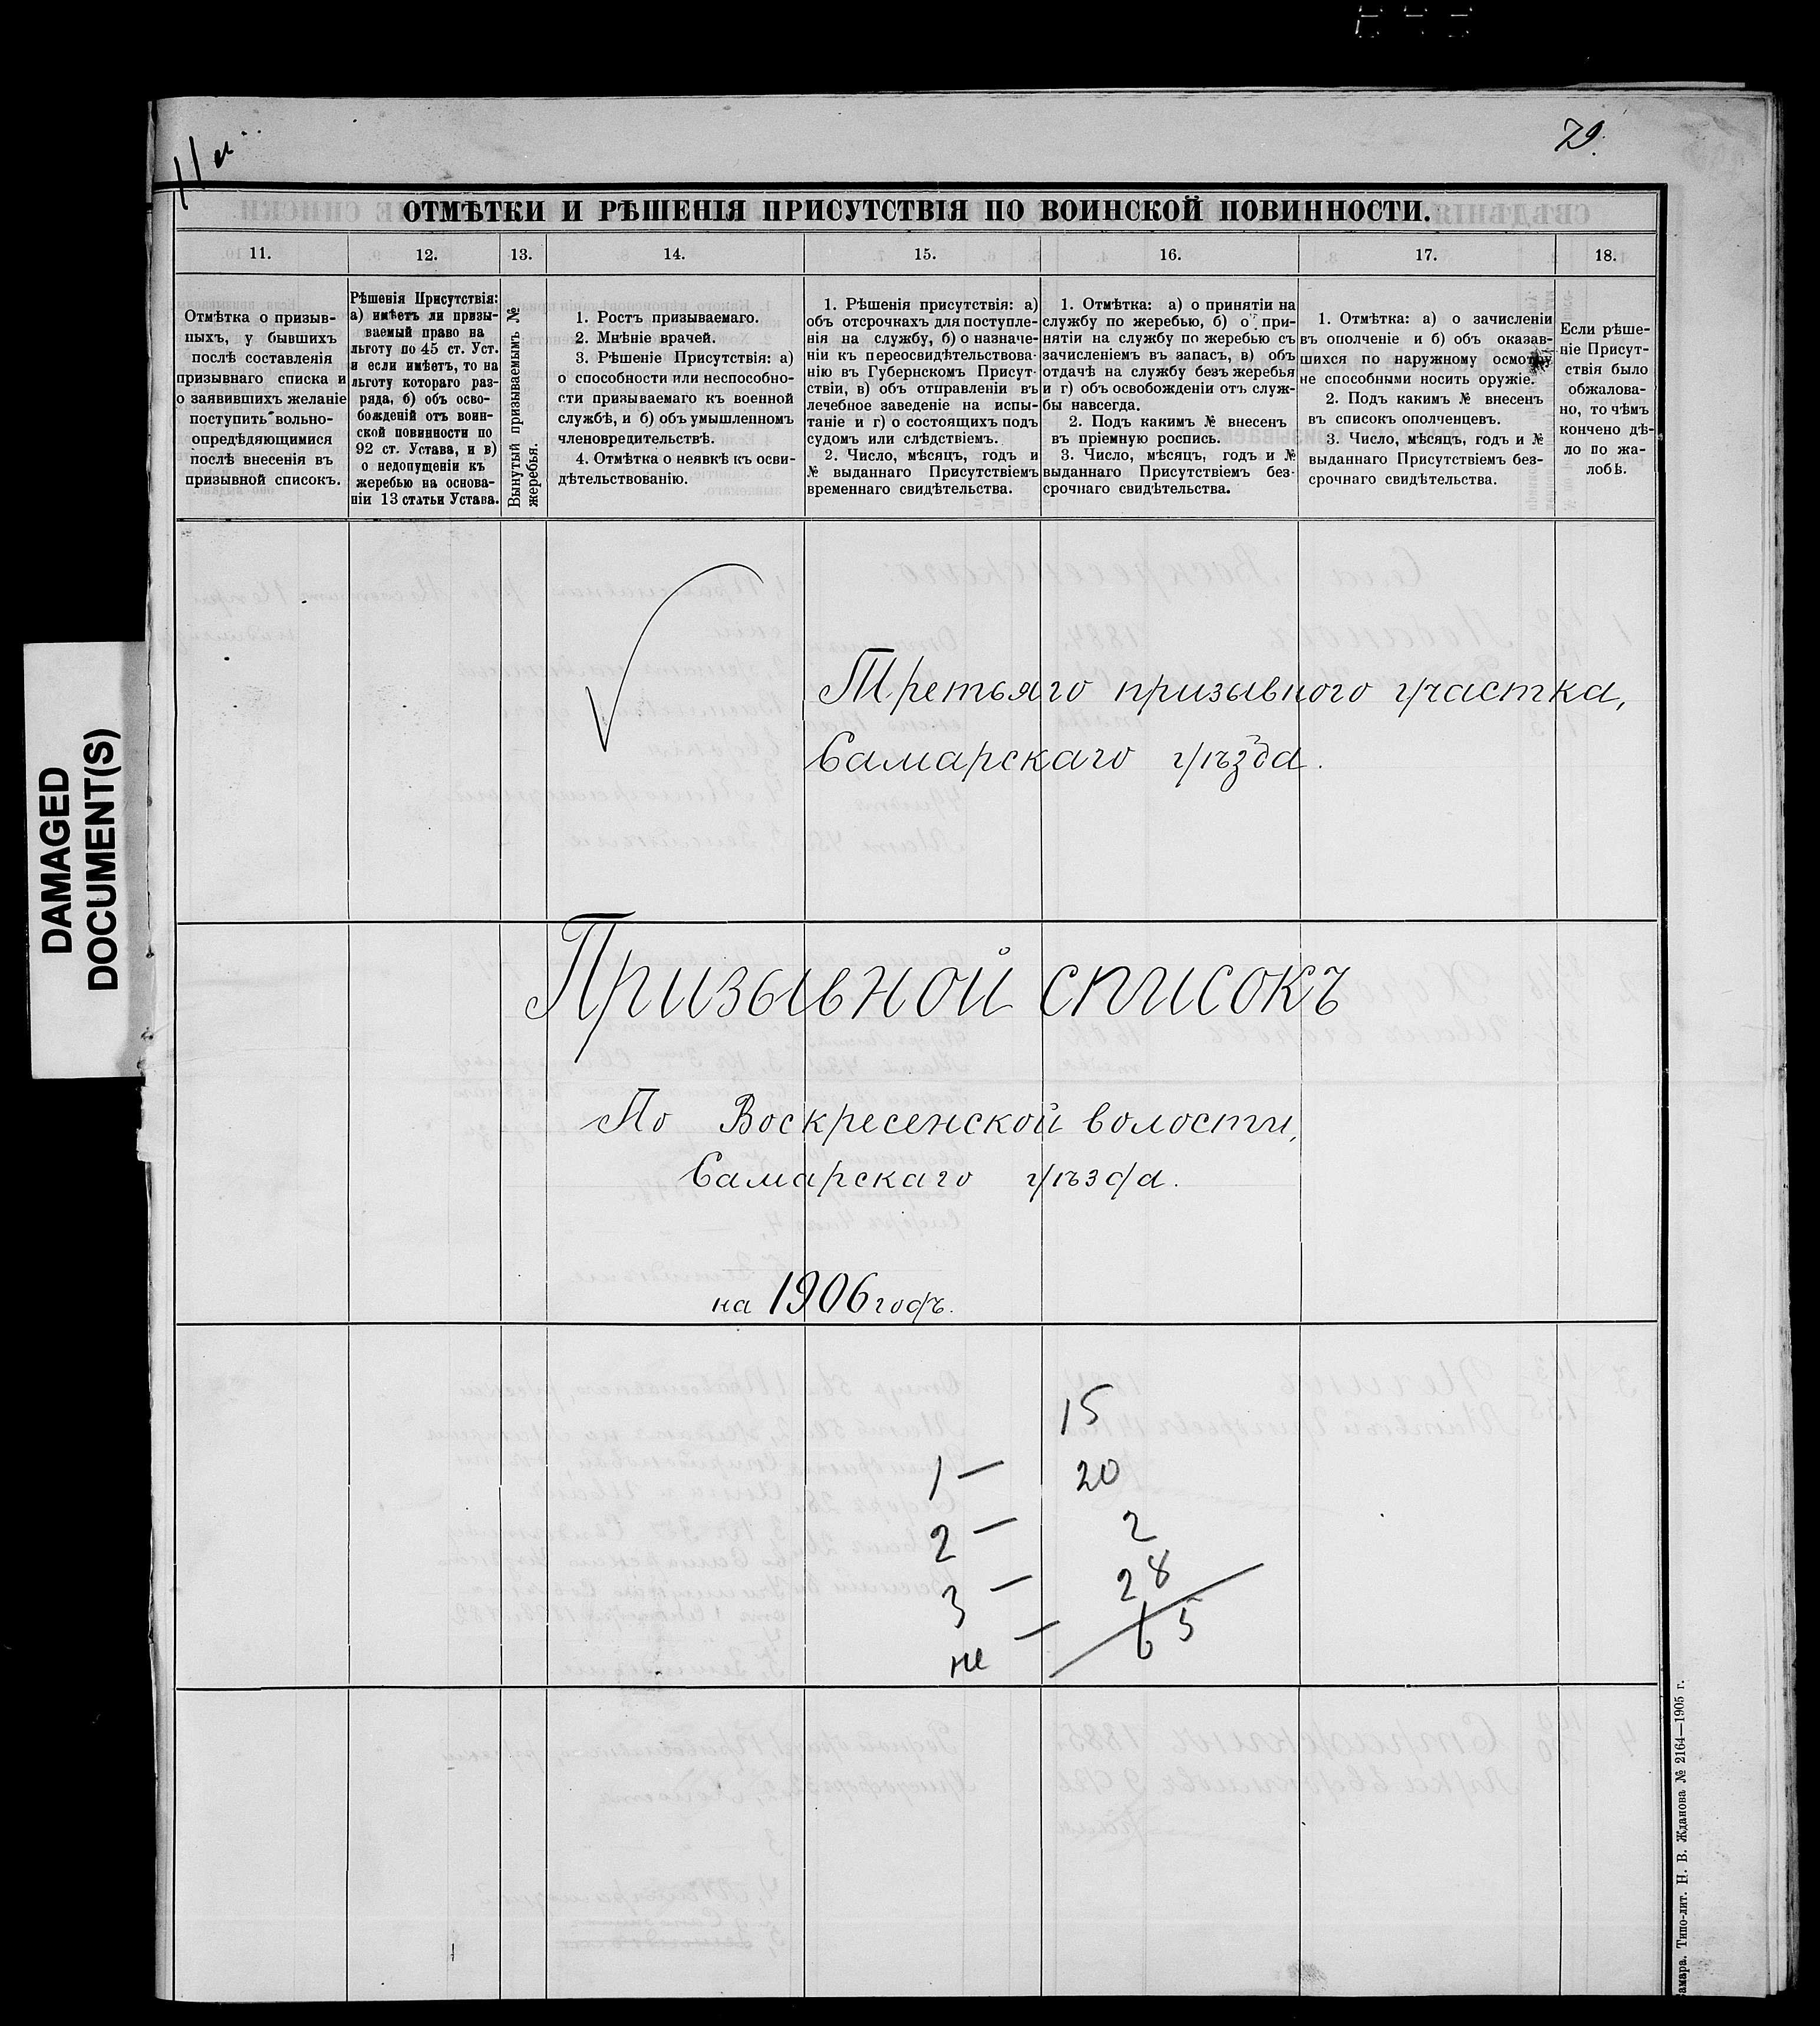 79.
ОТМѢТКИ И РѢШЕНІЯ ПРИСУТСТВІЯ ПО ВОИНСКОЙ ПОВИННОСТИ.
11.
12.
13.
14.
15.
16.
17.
18.
Отмѣтка о призыв-
ныхъ, у бывшихъ
послѣ составленія
призывнаго списка и
о заявившихъ желаніе
поступить вольно-
опредѣдяющимися
послѣ внесенія въ
призывной списокъ.
Рѣшенія Присутствія:
а) имѣетъ ли призы-
ваемый право на
льготу по 45 ст. Уст.
и если имѣетъ, то на
льготу котораго раз-
ряда, б) объ осво-
божденій отъ воин-
ской повинности по
92 ст. Устава, и в)
о недопущеніи къ
жеребью на основа-
ніи 13 статьи Устава.
Вынутый призываемымъ №
жеребья.
1. Ростъ призываемаго.
2. Мнѣніе врачей.
3. Рѣшеніе Присутствія: а)
о способности или неспособно-
сти призываемаго къ военной
службѣ, и б) объ умышленномъ
членовредительствѣ.
4. Отмѣтка о неявкѣ къ осви-
дѣтельствованію.
1. Рѣшенія присутствія: а)
объ отсрочкахъ для поступле-
нія на службу, б) о назначе-
ніи къ переосвидѣтельствова-
нію въ Губернскомъ Присут-
ствіи, в) объ отправленіи въ
лечебное заведеніе на испы-
таніе и г) о состоящихъ подъ
судомъ или слѣдствіемъ.
2. Число, мѣсяцъ, годъ и
№ выданнаго Присутствіемъ
временнаго свидѣтельства.
1. Отмѣтка: а) о принятіи на
службу по жеребью, б) о при-
нятіи на службу по жеребью съ
зачисленіемъ въ запасъ, в) объ
отдачѣ на службу безъ жеребья
и г) объ освобожденіи отъ служ-
бы навсегда.
2. Подъ какимъ № внесенъ
въ пріемную роспись.
3. Число, мѣсяцъ, годъ и №
выданнаго Присутствіемъ без-
срочнаго свидѣтельства.
1. Отмѣтка: а) о зачисленіи
въ ополченіе и б) объ оказав-
шихся по наружному осмотру
не способными носить оружіе.
2. Подъ какимъ № внесенъ
въ списокъ ополченцевъ.
3. Число, мѣсяцъ, годъ и №
выданнаго Присутствіемъ без-
срочнаго свидѣтельства.
Если рѣше-
ніе Присут-
ствія было
обжалова-
но, то чѣмъ
кончено дѣ-
ло по жа-
лобѣ.
Третьяго призывного участка,
Самарскаго уѣзда.
DAMAGED
DOCUMENT(S)
Призывной списокъ
По Воскресенской волости,
Самарскаго уѣзда.
на 1906 годъ.
15
1 — 20
2 — 2
3 — 28
не — 65
Самара. Типо-лит. Н. В. Жданова № 2164—1905 г.